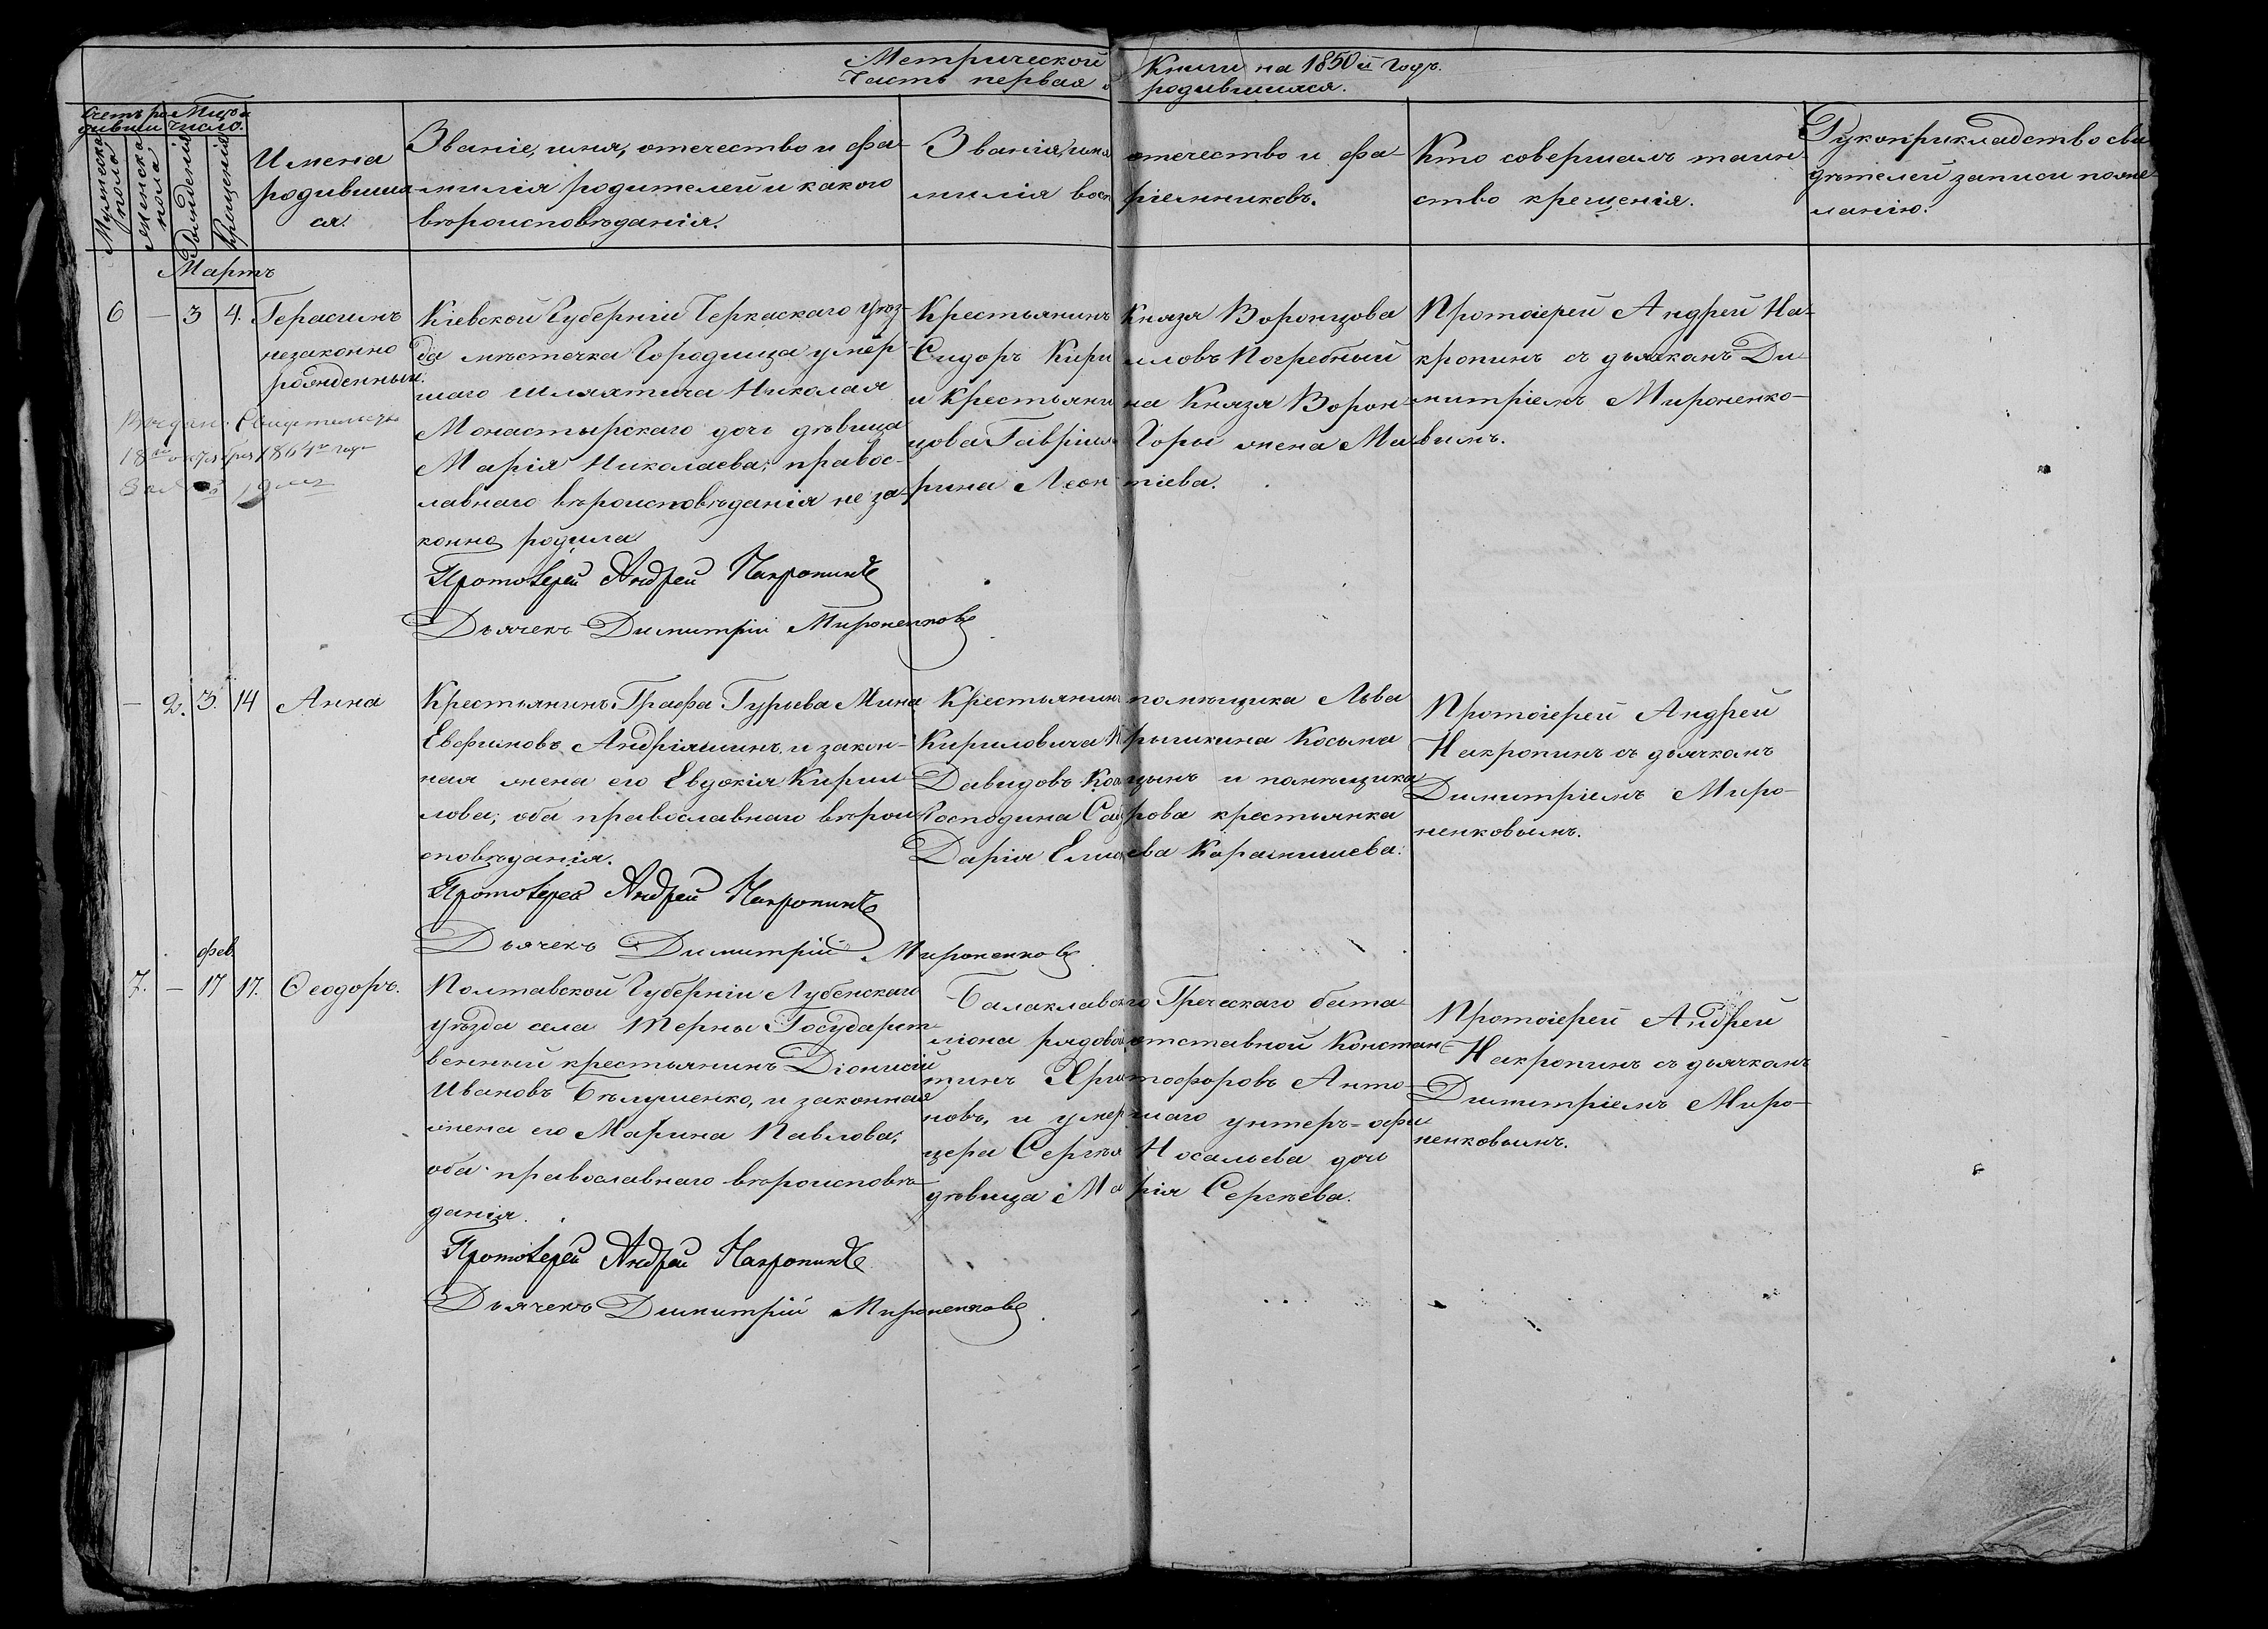 Метрической Книги на 1850й Годъ.
Часть первая о родившихся.
Счетъ родивши
Мужеска пола
Женска пола
Мцъ и число.
Рожденія
Крещенія
Имена
родивших
ся.
Званіе, имя, отечество и фа-
милія родителей и какого
вѣроисповѣданія.
Званія, имя отечество и фа-
милія воспріемниковъ.
Кто совершалъ таин-
ство крещенія.
Рукоприкладство сви
дѣтелей записи по же-
ланію.
Мартъ
6 — 3 4. Герасимъ
незаконно
рожденный.
Свидетельство
18го 1864го года
Кіевской Губерніи Черкаскаго Уѣз-
да мѣстечка Городища умер
шаго Шляхтича Николая
Монастырскаго дочь дѣвица
Марія Николаева; правос-
лавнаго вѣроисповѣданія не за-
конно родила
Протоіерей Андрей Накропинъ
Дьячекъ Димитрій Мироненковъ
Крестьянинъ Князя Воронцова
Сидоръ Кириловъ Погребный
и Крестьянина Князя Ворон-
цова Гавріила Горы жена Ма
рина Леонтіева.
Протоіерей Андрей На-
кропинъ съ дьячкомъ Ди
митріемъ Мироненко-
вымъ.
— 2. 3. 14 Анна
Крестьянинъ Графа Гурьева Мина
Евфимовъ Андріяшинъ, и закон-
ная жена его Евдокія Кирил
лова; оба православнаго вѣрои
сповѣданія.
Протоіерей Андрей Накропинъ
Дьячекъ Димитрій Мироненковъ
Крестьянинъ помѣщика Льва
Кириловича Нарышкина Косьма
Давидовъ и помѣщика
Господина крестьянка
Дарія
Протоіерей Андрей
Накропинъ съ дьячкомъ
Димитріемъ Миро-
ненковымъ.
фев.
7. — 17 17. Ѳеодоръ.
Полтавской Губерніи Лубенскаго
уѣзда села Терны Государст
венный крестьянинъ Діонисій
Ивановъ Бѣлушенко, и законная
жена его Марина Павлова;
оба православнаго вѣроисповѣ-
данія.
Протоіерей Андрей Накропинъ
Дьячекъ Димитрій Мироненковъ
Балаклавскаго Греческаго бата
ліона рядовой отставной Констан
тинъ Христофоровъ Анто-
новъ, и умершаго унтеръ-офи
цера Сергѣя дочь
дѣвица Марія Сергѣева.
Протоіерей Андрей
Накропинъ съ дьячкомъ
Димитріемъ Миро-
ненковымъ.